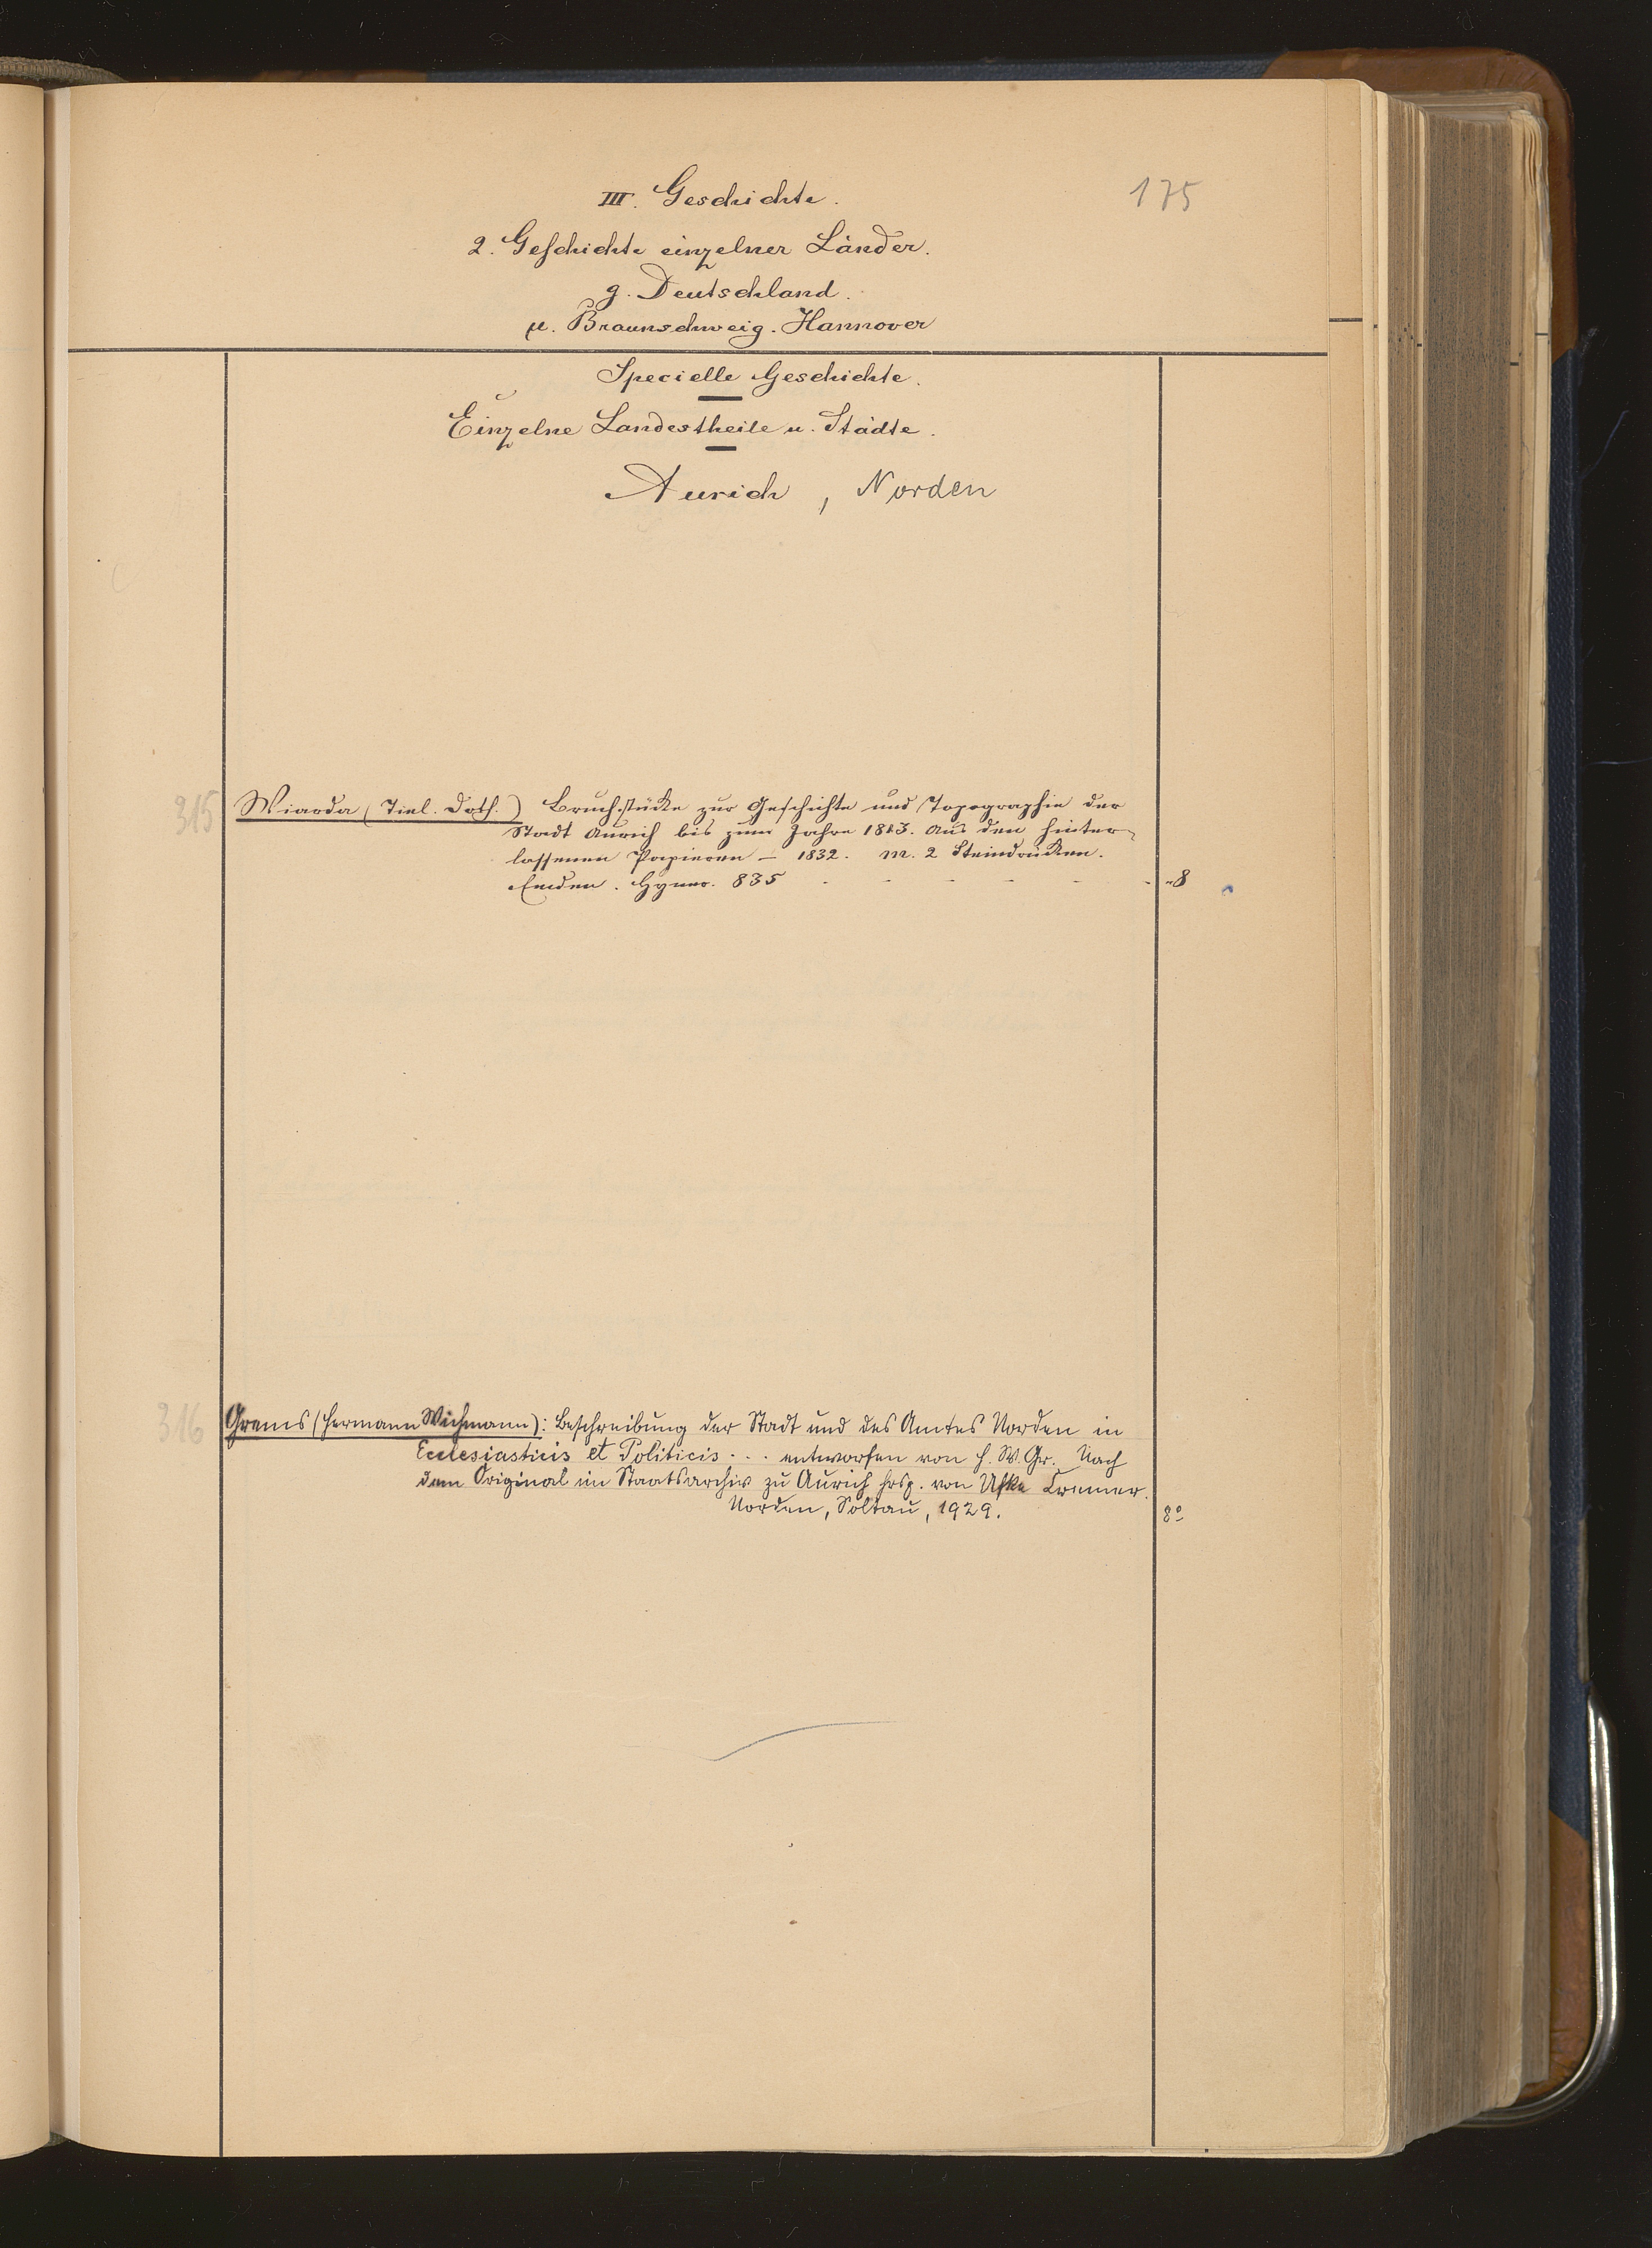 175
III. Geschichte.
2. Geschichte einzelner Länder.
g. Deutschland.
μ. Braunschweig. Hannover
Specielle Geschichte.
Einzelne Landestheile u. Städte.
Aurich, Norden
315 Wiarda (Tiel. Doth.) Bruchstücke zur Geschichte und Topographie der
Stadt Aurich bis zum Jahre 1813. Aus den hinter-
lassenen Papieren – 1832. M. 2 Steindrücken.
Emden. Hyner. 835 - - - - - - 8
316 Grems (Hermann Wichmann): Beschreibung der Stadt und des Amtes Norden in
Ecclesiasticis et Politicis ... entworfen von H. W. Gr. Nach
dem Original im Staatsarchiv zu Aurich hrsg. von Ufke Cremer.
Norden, Soltau, 1929. 8°